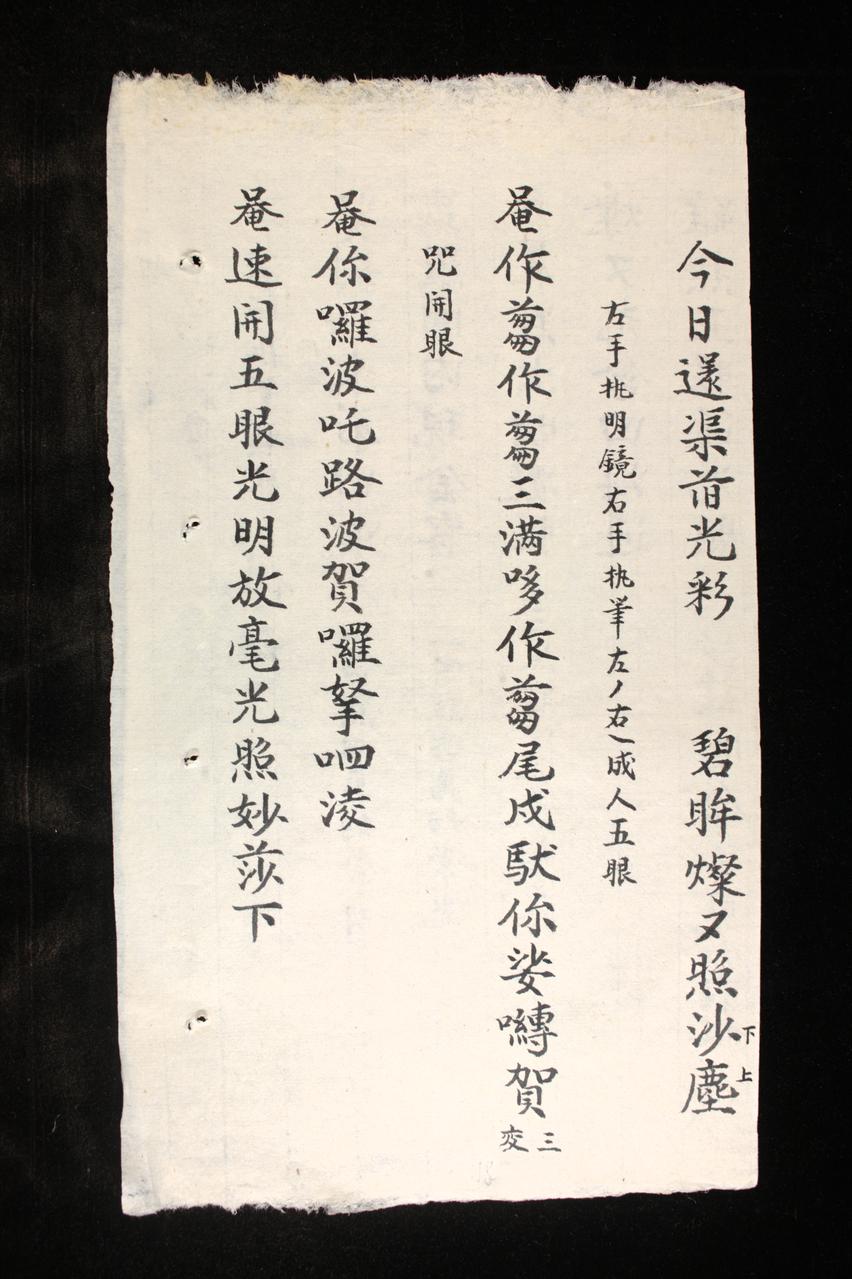 今日還渠光彩 碧眸燦又照沙塵
下上
左手执明鏡右手执筆左ノ右乀成人五眼
唵作蒭作蒭三满哆作蒭尾戍馱你娑嚩賀 三变
咒開眼
唵你囉波吒路波賀囉拏呬淩
唵速開五眼光明放毫光照妙莎下